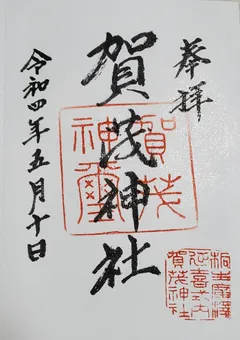 奉拝
賀茂神社
令和四年五月十日
賀茂
神璽
延喜式内
賀茂神社